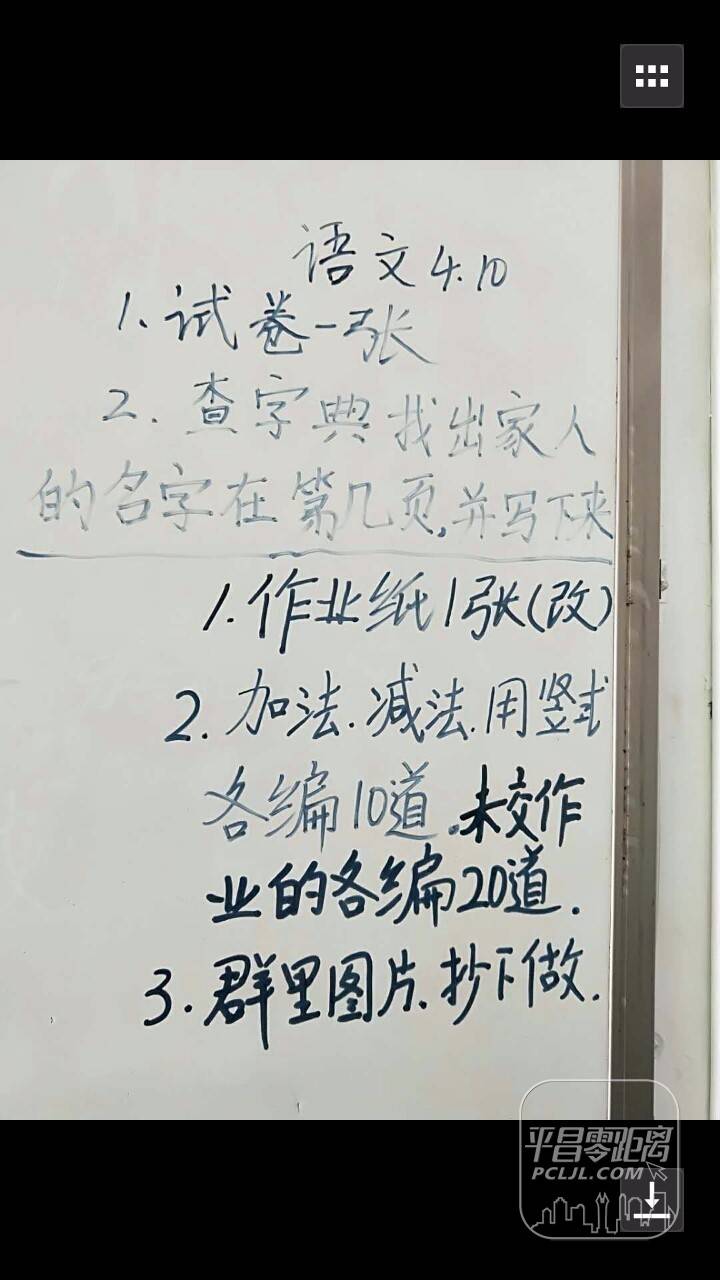 语文4.10
1.试卷一张
2.查字典找出家人
的名字在第几页,并写下来
1.作业纸1张(改)
2.加法.减法.用竖式
各编10道.未交作
业的各编20道.
3.群里图片.抄下做.
平昌零距离
PCLJL.COM